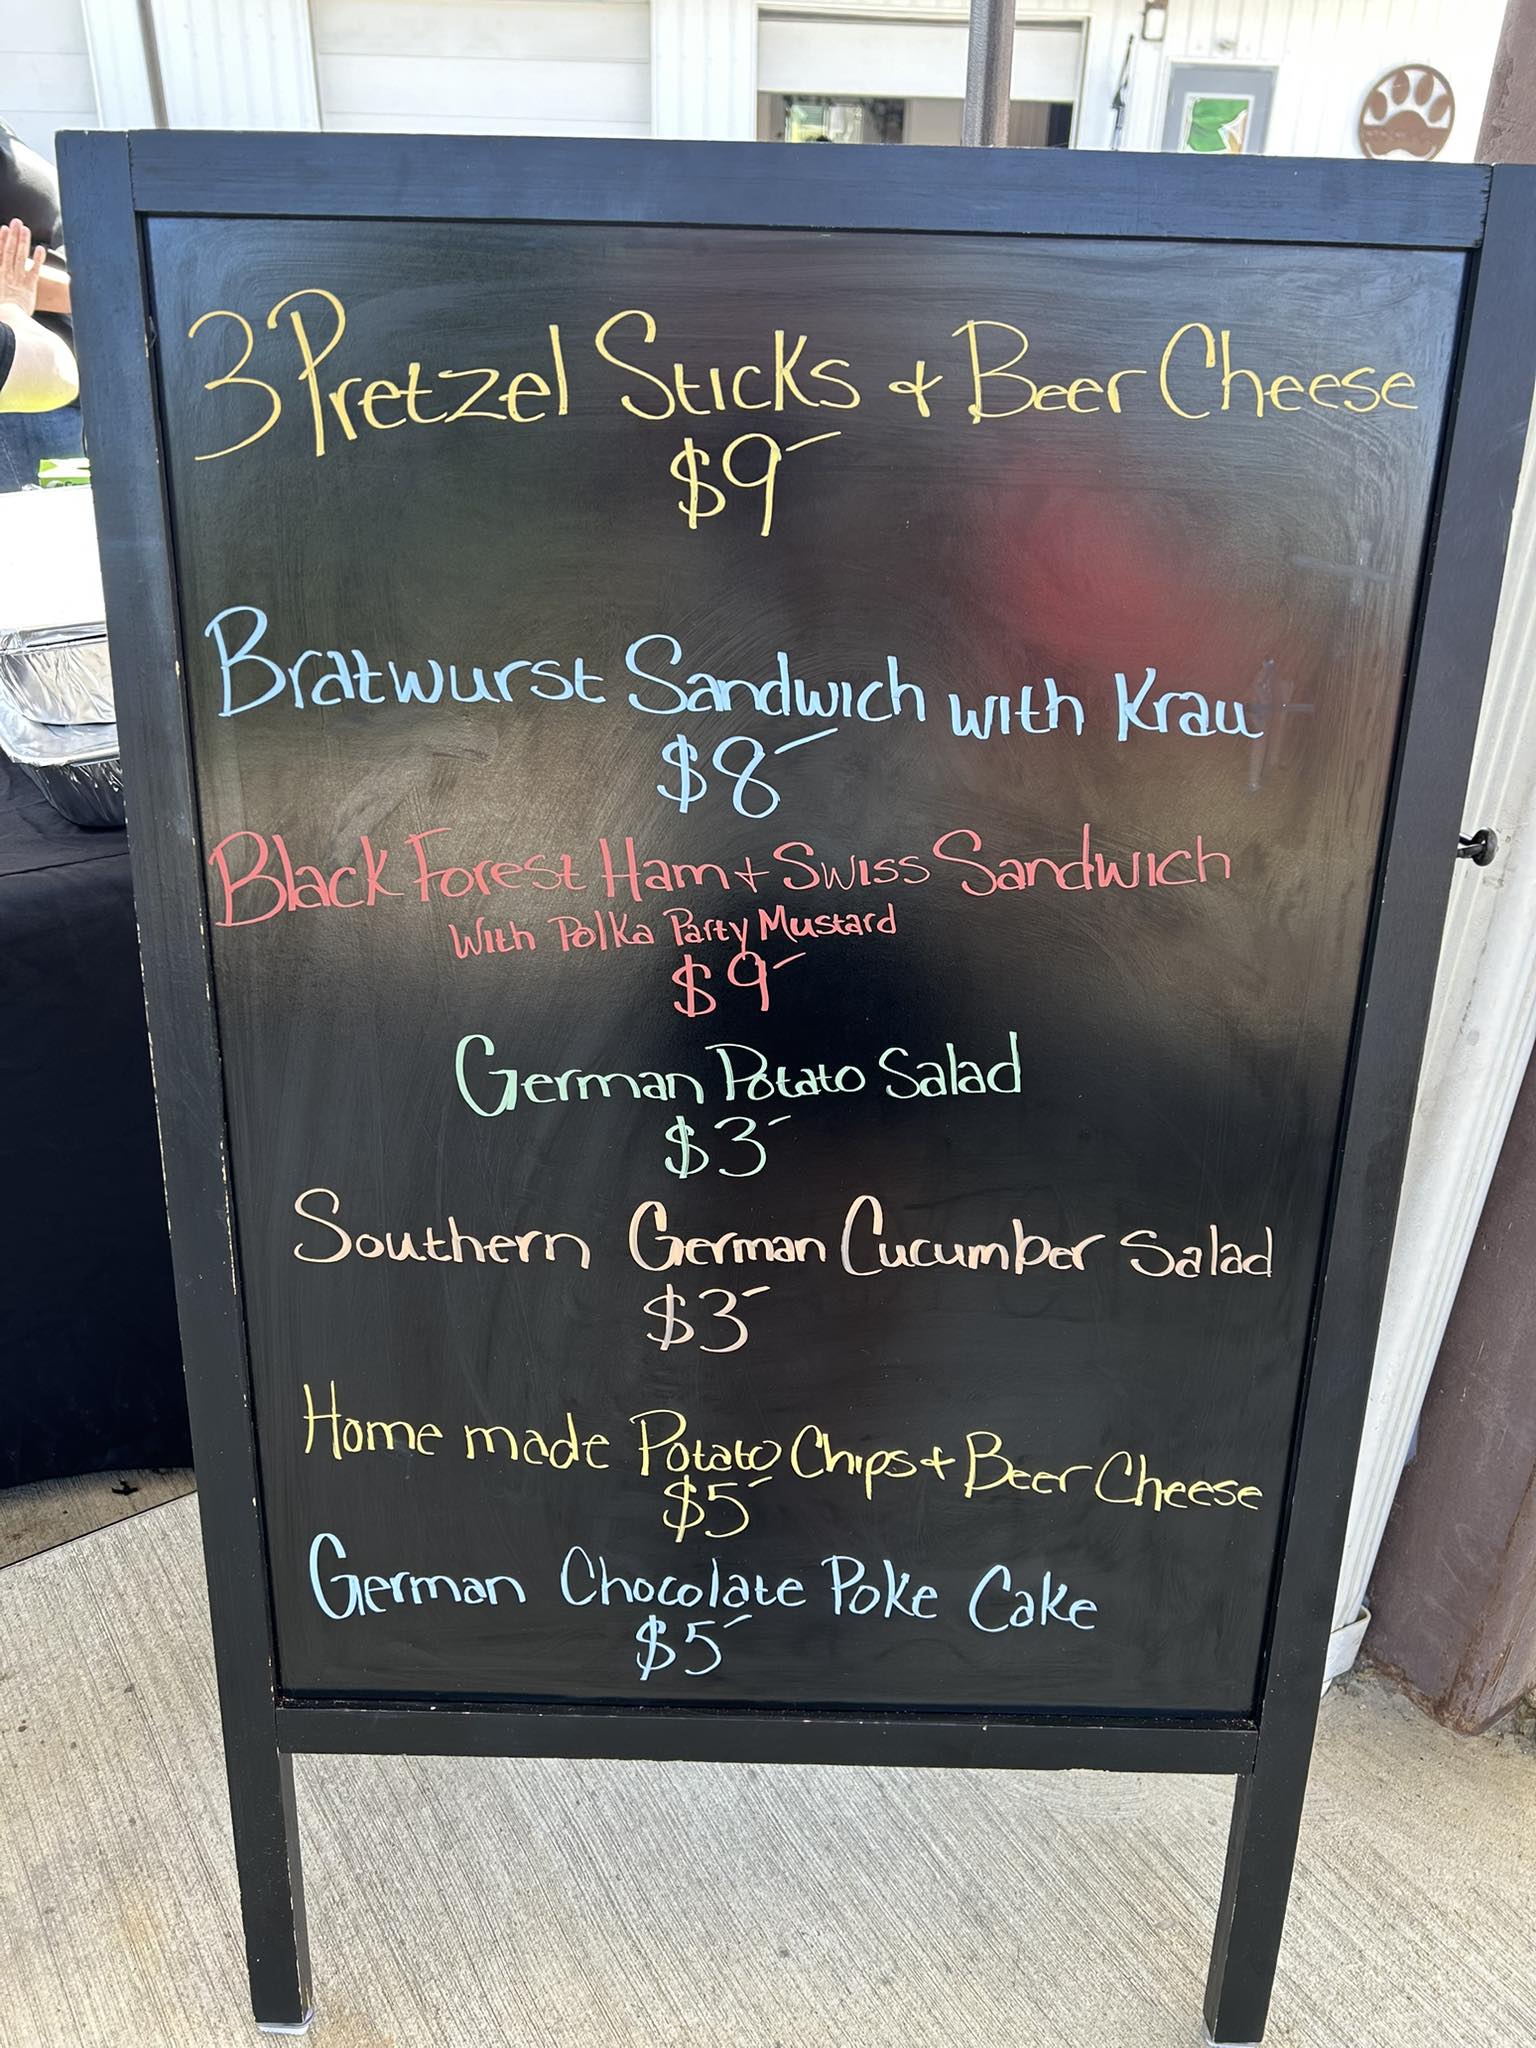 3 Pretzel Sticks & Beer Cheese
$9-
Bratwurst Sandwich with Krau
$8-
Black Forest Ham + Swiss Sandwich
With Polka Party Mustard
$9-
German Potato Salad
$3-
Southern German Cucumber Salad
$3-
Home made Potato Chips + Beer Cheese
$5-
German Chocolate Poke Cake
$5-